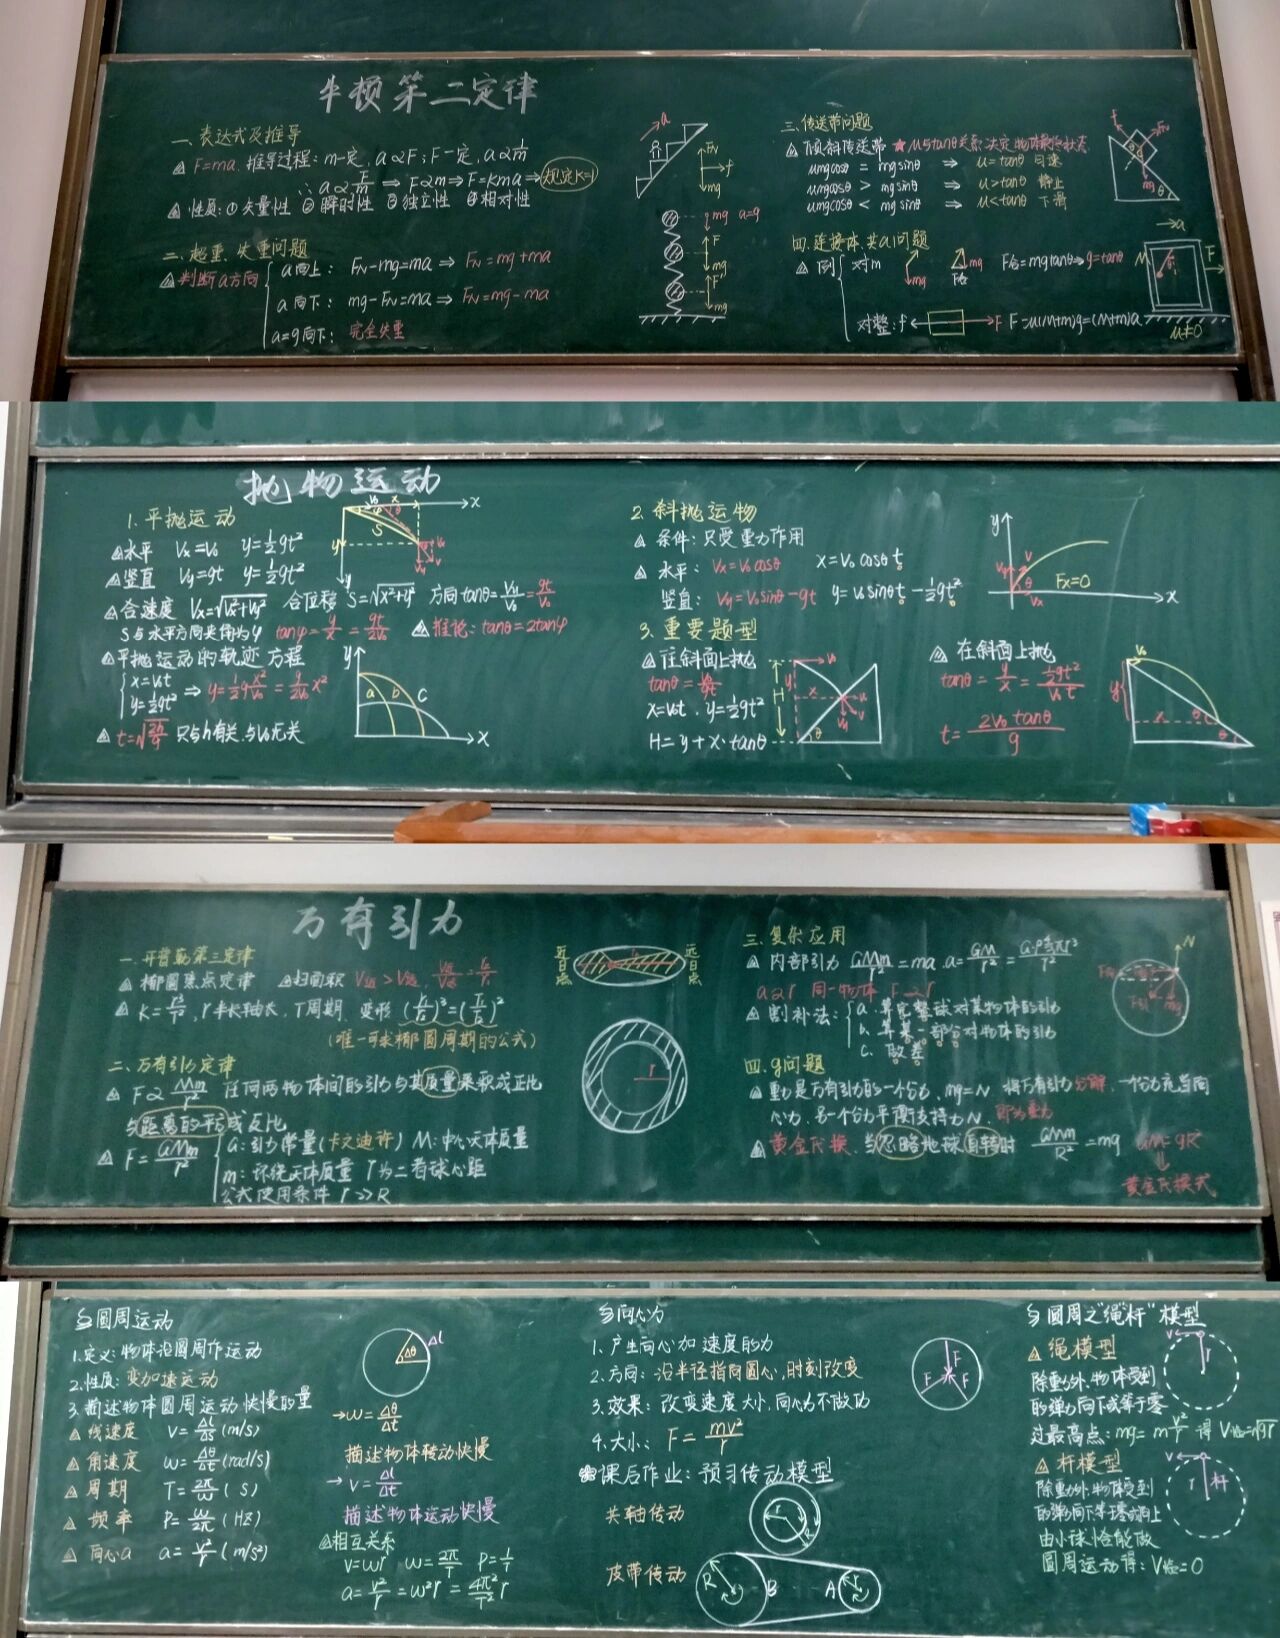 牛顿第二定律
一、表达式及推导
F=ma. 推导过程: m一定, a∝F; F一定, a∝1/m
∴ a∝F/m ⇒ F∝ma ⇒ F=kma ⇒ 规定K=1
性质: ①矢量性 ②瞬时性 ③独立性 ④相对性
二、超重、失重问题
判断a方向
a向上: FN-mg=ma ⇒ FN=mg+ma
a向下: mg-FN=ma ⇒ FN=mg-ma
a=g向下: 完全失重
a
FN
f
mg
mg a=g
F
mg
F
mg
三、传送带问题
倾斜传送带 ★ μ与tanθ关系决定物体最终状态
μmgcosθ = mgsinθ ⇒ μ=tanθ 匀速
μmgcosθ > mgsinθ ⇒ μ>tanθ 静止
μmgcosθ < mgsinθ ⇒ μ<tanθ 下滑
f
FN
mg
θ
四、连接体、共a问题
例
对m
mg
mg
F合
F合=mgtanθ⇒g=tanθ
对整: f F F-μ(M+m)g=(M+m)a
→a
M
F
μ≠0
抛物运动
1. 平抛运动
水平 Vx=V0 y=½gt²
竖直 Vy=gt y=½gt²
合速度 Vx=√V0²+Vy² 合位移 S=√x²+y² 方向 tanθ=Vy/V0=gt/V0
S与水平方向夹角为φ tanφ=y/x=gt/2V0 推论: tanθ=2tanφ
平抛运动的轨迹方程
x=V0t
y=½gt² ⇒ y=½g x²/V0²=g/2V0² x²
t=√2h/g 只与h有关,与V0无关
V0
x
θ
S
y
x
y
y
a b C
x
2. 斜抛运物
条件: 只受重力作用
水平: Vx=V0cosθ x=V0cosθt
竖直: Vy=V0sinθ-gt y=V0sinθt-½gt²
y
Vy
V
θ
Vx
Fx=0
x
3. 重要题型
往斜面上抛
tanθ=V0/gt
x=V0t. y=½gt²
H=y+x·tanθ
H
y
x
θ
在斜面上抛
tanθ=y/x=½gt²/V0t
t=2V0tanθ/g
V0
y
x
θ
θ
万有引力
一、开普勒第三定律
椭圆焦点定律 扫面积 V近>V远
K=r³/T², r半长轴长, T周期. 变形 (r/r)³=(T/T)²
(唯一可求椭圆周期的公式)
近日点
远日点
二、万有引力定律
F∝Mm/r² 任何两物体间的引力与其质量乘积成正比
与距离的平方成反比
F=GMm/r²
G: 引力常量(卡文迪许) M: 中心天体质量
m: 环绕天体质量 r为二者球心距
公式使用条件 r≫R
r
三、复杂应用
内部引力 GMm/r²=ma. a=GM/r²=G·ρ4/3πr³/r²
a∝r 同一物体 F∝r
割补法:
a. 算完整球对某物体的引力
b. 算某一部分对物体的引力
c. 做差
N
mg
四. g问题
重力是万有引力的一个分力, mg=N 将万有引力分解, 一个分力充当向
心力, 另一个分力平衡支持力N 即为重力
黄金代换. 当忽略地球自转时 GMm/R²=mg GM=gR²
黄金代换式
圆周运动
1.定义: 物体沿圆周作运动
2.性质: 变加速运动
3.描述物体圆周运动快慢的量
线速度 v=Δl/Δs(m/s)
角速度 ω=Δθ/Δt(rad/s)
周期 T=2π/ω (S)
频率 P=ω/2π (HZ)
向心a a=v²/r (m/s²)
Δl
Δθ
→ω=Δθ/Δt
描述物体转动快慢
→v=Δl/Δt
描述物体运动快慢
相互关系
v=ωr ω=2π/T P=1/T
a=v²/r=ω²r=4π²/T² r
向心力
1.产生向心加速度的力
2.方向: 沿半径指向圆心,时刻改变
3.效果: 改变速度大小,向心力不做功
4.大小: F=mv²/r
课后作业: 预习传动模型
共轴传动
皮带传动
F
F
F
r
R
R
B
A
r
圆周之"绳""杆"模型
绳模型
除重力外,物体受到
的弹力向下或等于零
过最高点: mg=mv²/r 得 V临=√gr
杆模型
除重力外物体受到
的弹力向下等于零或向上
由小球恰能做
圆周运动得: V临=0
V
r
V
r
杆